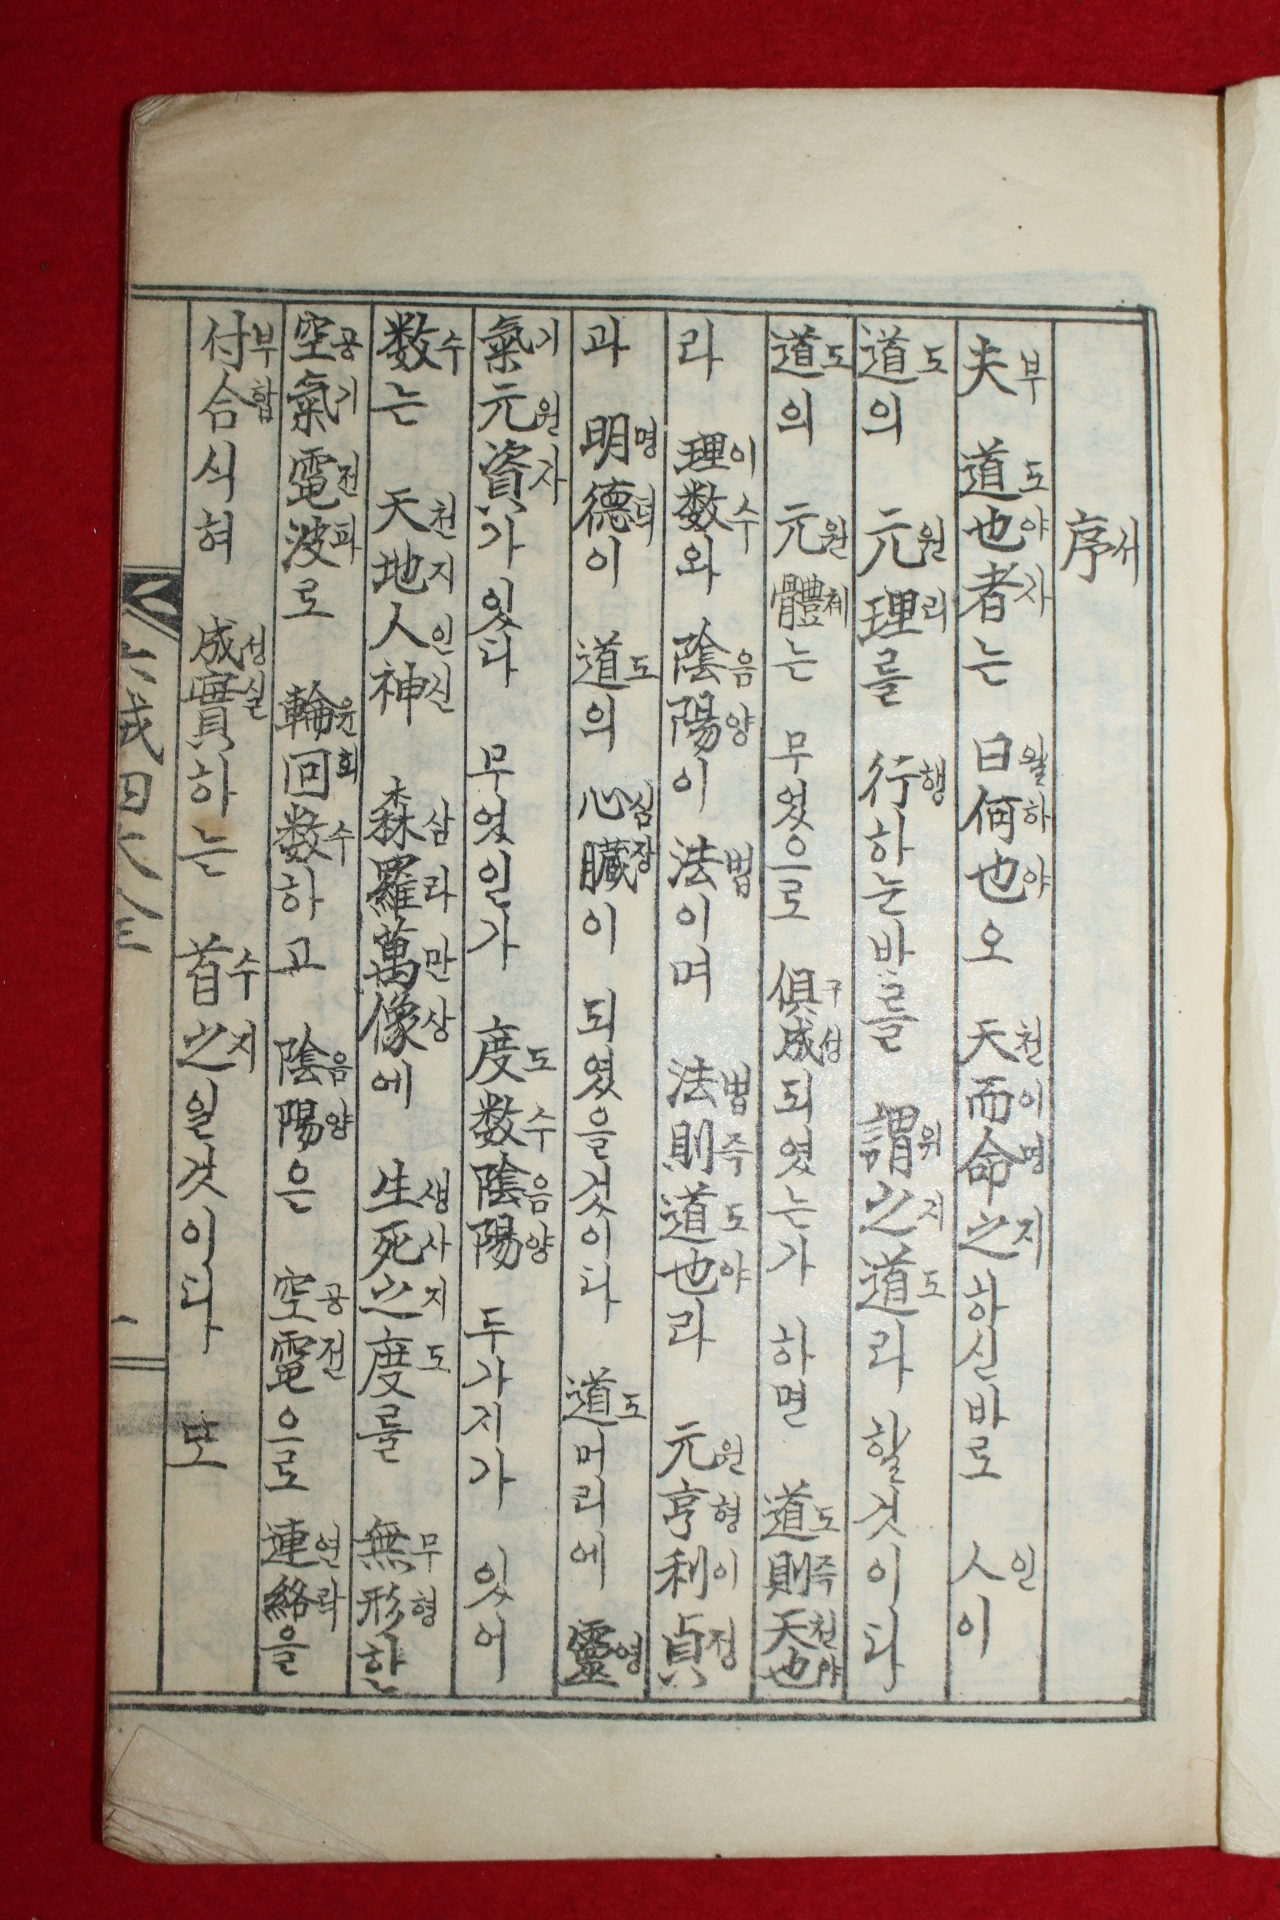 序서
夫부 道도也야者자는 曰왈何하也야오 天천而이命명之지하신바로 人인이
道도의 元원理리를 行행하는바를 謂위之지道도라 할것이다
道도의 元원體체는 무엇으로 俱구成성되였는가 하면 道도則즉天천也야
라 理이数수와 陰음陽양이 法법이며 法법則즉道도也야라 元원亨형利이貞정
과 明명德덕이 道도의 心심臟장이 되였을것이다 道도머리에 靈영
氣기元원資자가 있다 무었일가 度도数수陰음陽양 두가지가 있어
数수는 天천地지人인神신 森삼羅라萬만像상에 生생死사之지度도를 無무形형한
空공氣기電전波파로 輪윤回회数수하고 陰음陽양은 空공電전으로 連연絡락을
付부合합식혀 成성實실하는 首수之지일것이다 또